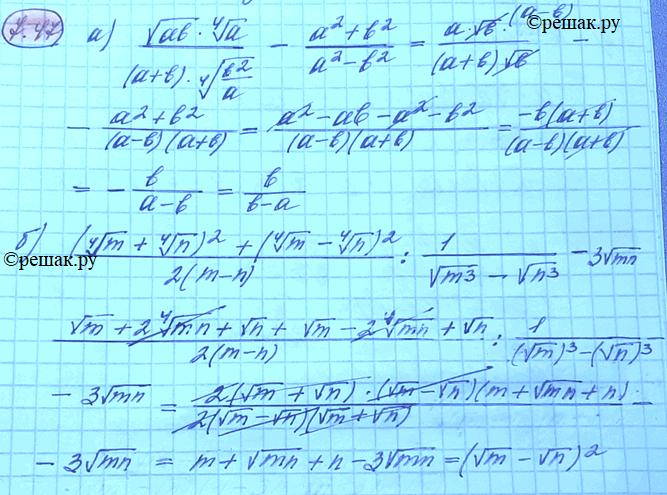 ©решак.ру
7.47 а) (√(ab) · ⁴√a) / ((a+b) · ⁴√(b²/a)) − (a²+b²)/(a²−b²) = (a·√b·(a−b))/((a+b)√b) −
− (a²+b²)/((a−b)(a+b)) = (a²−ab−a²−b²)/((a−b)(a+b)) = (−b(a+b))/((a−b)(a+b))
= − b/(a−b) = b/(b−a)
б) ((⁴√m + ⁴√n)² + (⁴√m − ⁴√n)²)/(2(m−n)) : 1/(√m³ − √n³) − 3√mn
©решак.ру
(√m + 2⁴√mn + √n + √m − 2⁴√mn + √n)/(2(m−n)) : 1/((√m)³−(√n)³)
− 3√mn = (2(√m + √n)·(√m−√n)(m+√mn+n))/(2(√m−√n)(√m+√n)) −
− 3√mn = m+√mn+n−3√mn=(√m−√n)²
©решак.ру